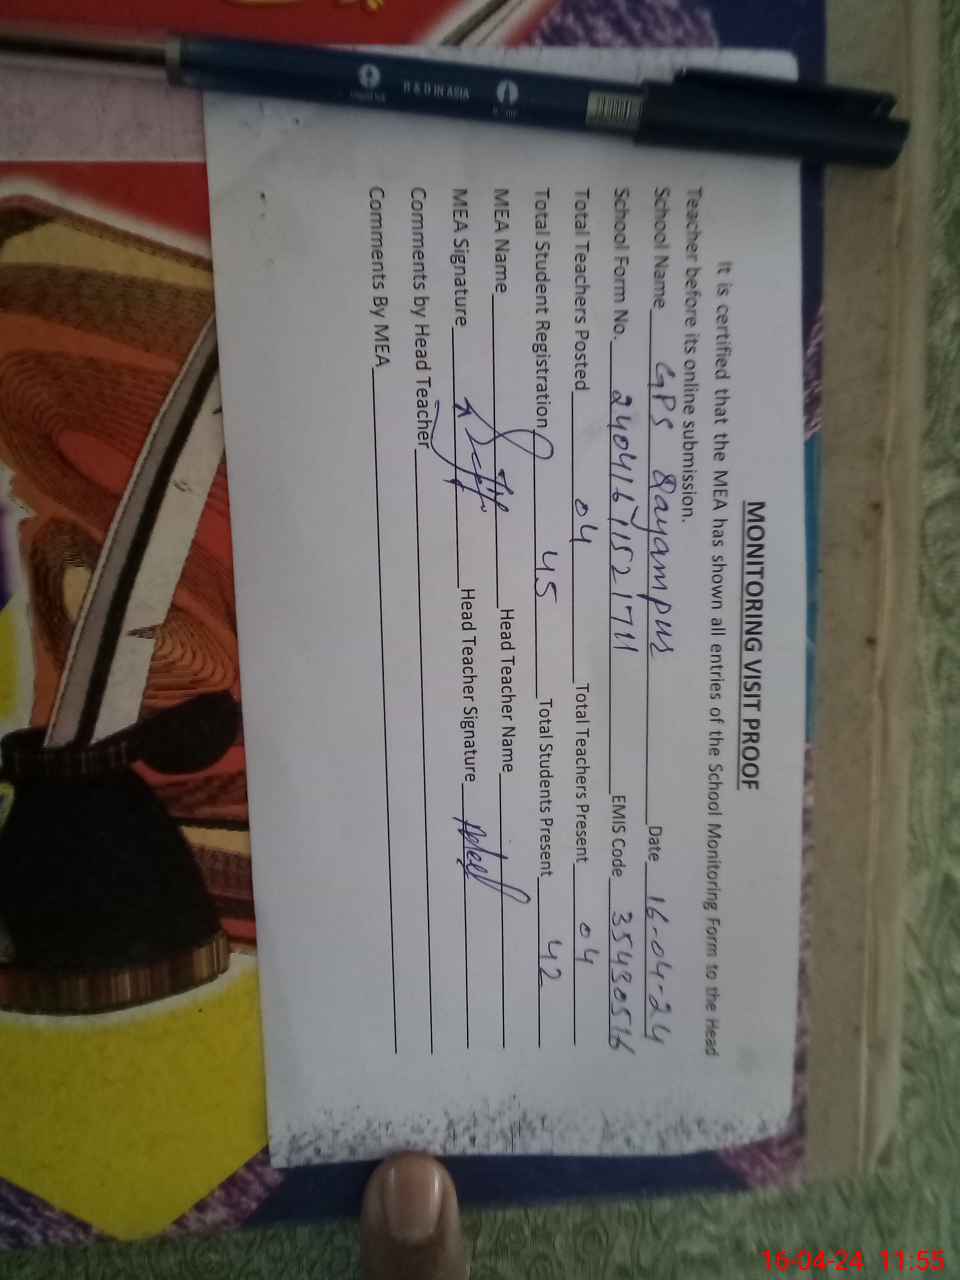 MONITORING VISIT PROOF
It is certified that the MEA has shown all entries of the School Monitoring Form to the Head
Teacher before its online submission.
School Name GPS Rayampur Date 16-04-24
School Form No. 2404161521711 EMIS Code 35430516
Total Teachers Posted 04 Total Teachers Present 04
Total Student Registration 45 Total Students Present 42
MEA Name Head Teacher Name
MEA Signature Head Teacher Signature
Comments by Head Teacher
Comments By MEA
R & D IN ASIA
16-04-24 11:55